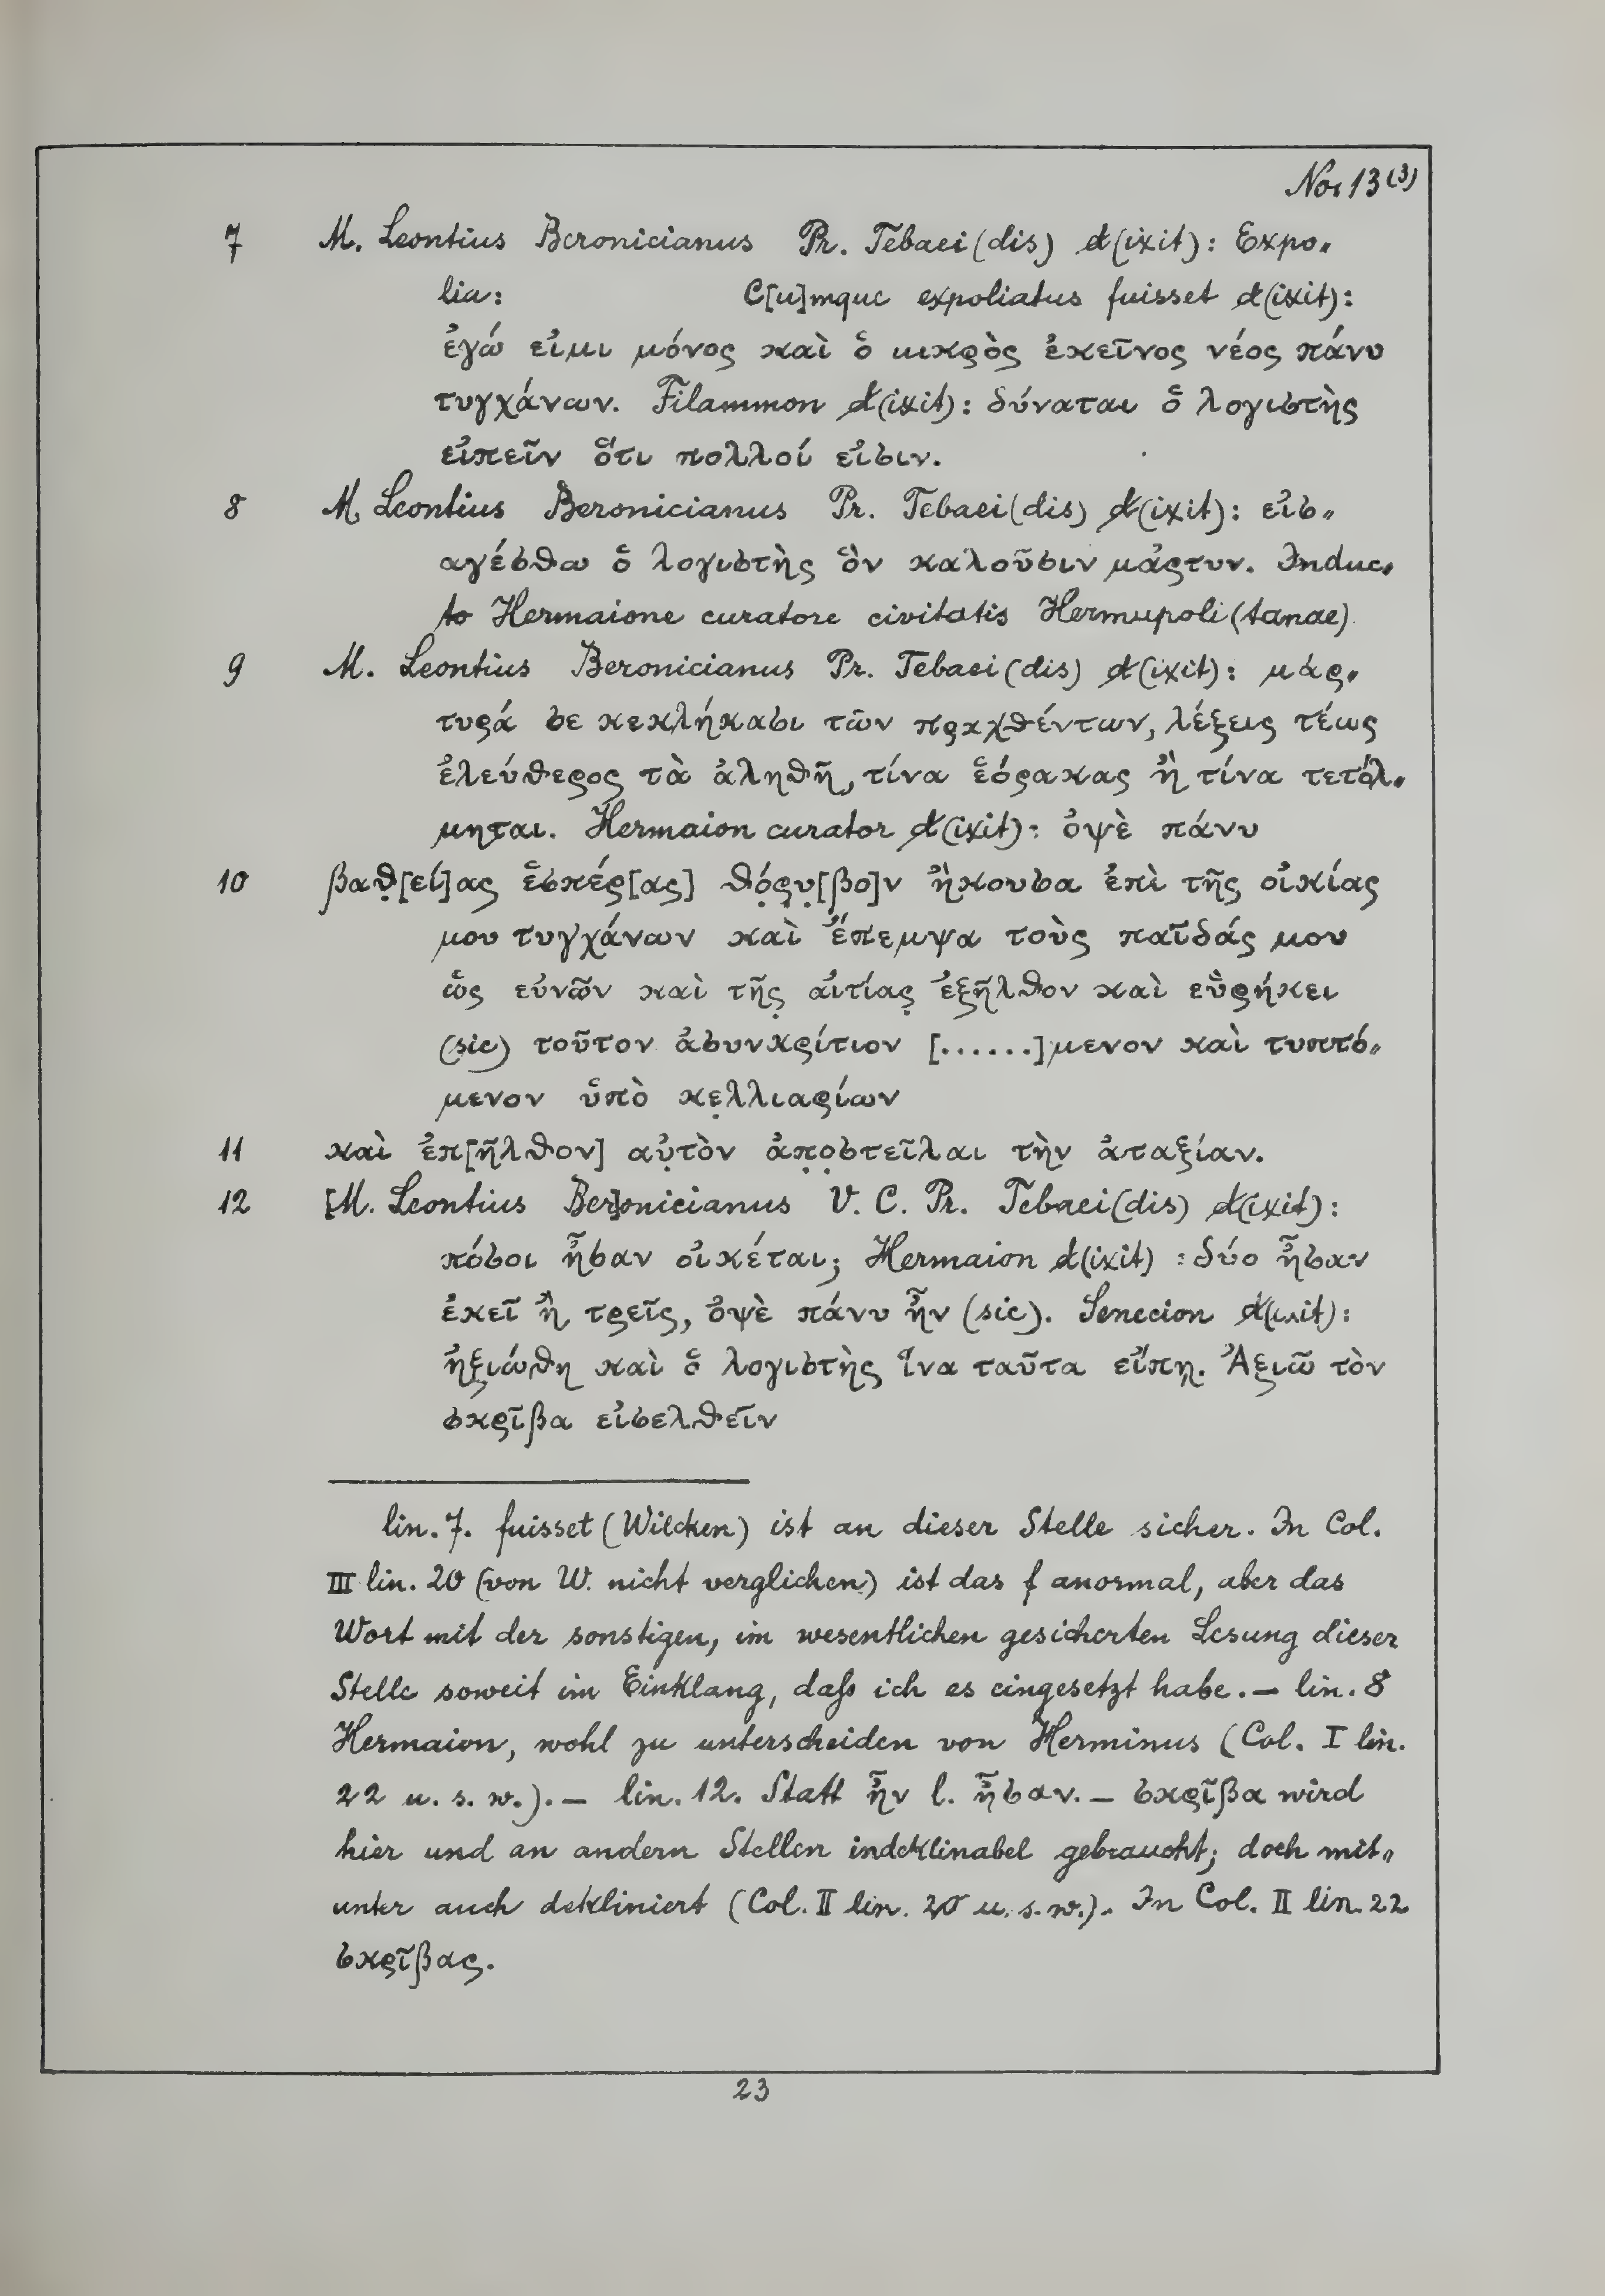 No. 13 (3)
7 M. Leontius Beronicianus Pr. Tebaei(dis) d(ixit): Expo-
lia: C[u]mque expoliatus fuisset d(ixit):
ἐγώ εἰμι μόνος καὶ ὁ μικρὸς ἐκεῖνος νέος πάνυ
τυγχάνων. Filammon d(ixit): δύναται ὁ λογιστὴς
εἰπεῖν ὅτι πολλοί εἰσιν.
8 M. Leontius Beronicianus Pr. Tebaei(dis) d(ixit): εἰσ-
αγέσθω ὁ λογιστὴς ὃν καλοῦσιν μάρτυν. Induc-
to Hermaione curatore civitatis Hermupoli(tanae)
9 M. Leontius Beronicianus Pr. Tebaei(dis) d(ixit): μάρ-
τυρά σε κεκλήκασι τῶν πραχθέντων, λέξεις τέως
ἐλεύθερος τὰ ἀληθῆ, τίνα ἑόρακας ἢ τίνα τετόλ-
μηται. Hermaion curator d(ixit): ὀψὲ πάνυ
10 βαθ̣[εί]ας ἑσπέρ[ας] θό̣ρ̣υ̣[βο]ν ἤκουσα ἐπὶ τῆς οἰκίας
μου τυγχάνων καὶ ἔπεμψα τοὺς παῖδάς μου
ὡς εὐνῶν καὶ τῆς̣ αἰτίας̣ ἐξῆλθον καὶ εὑρήκει
(sic) τοῦτον ἀσυνκρίτιον [......]μενον καὶ τυπτό-
μενον ὑπὸ κε̣λλιαρίων
11 καὶ ἐπ[ῆλθον] αὐ̣τὸν ἀπ̣ο̣στεῖλαι τὴν ἀταξίαν.
12 [M. Leontius Ber]onicianus V. C. Pr. Tebaei(dis) d(ixit):
πόσοι ἦσαν οἰκέται; Hermaion d(ixit): δύο ἦσαν
ἐκεῖ ἢ τρεῖς, ὀψὲ πάνυ ἦν (sic). Senecion d(ixit):
ἠξιώθη καὶ ὁ λογιστὴς ἵνα ταῦτα εἴπῃ. Ἀξιῶ τὸν
σκρῖβα εἰσελθεῖν
lin. 7. fuisset (Wilcken) ist an dieser Stelle sicher. In Col.
III lin. 20 (von W. nicht verglichen) ist das f anormal, aber das
Wort mit der sonstigen, im wesentlichen gesicherten Lesung dieser
Stelle soweit im Einklang, daß ich es eingesetzt habe. — lin. 8
Hermaion, wohl zu unterscheiden von Herminus (Col. I lin.
22 u. s. w.). — lin. 12. Statt ἦν l. ἦσαν. — σκρῖβα wird
hier und an andern Stellen indeklinabel gebraucht; doch mit-
unter auch dekliniert (Col. II lin. 20 u. s. w.). In Col. II lin. 22
σκρῖβας.
23